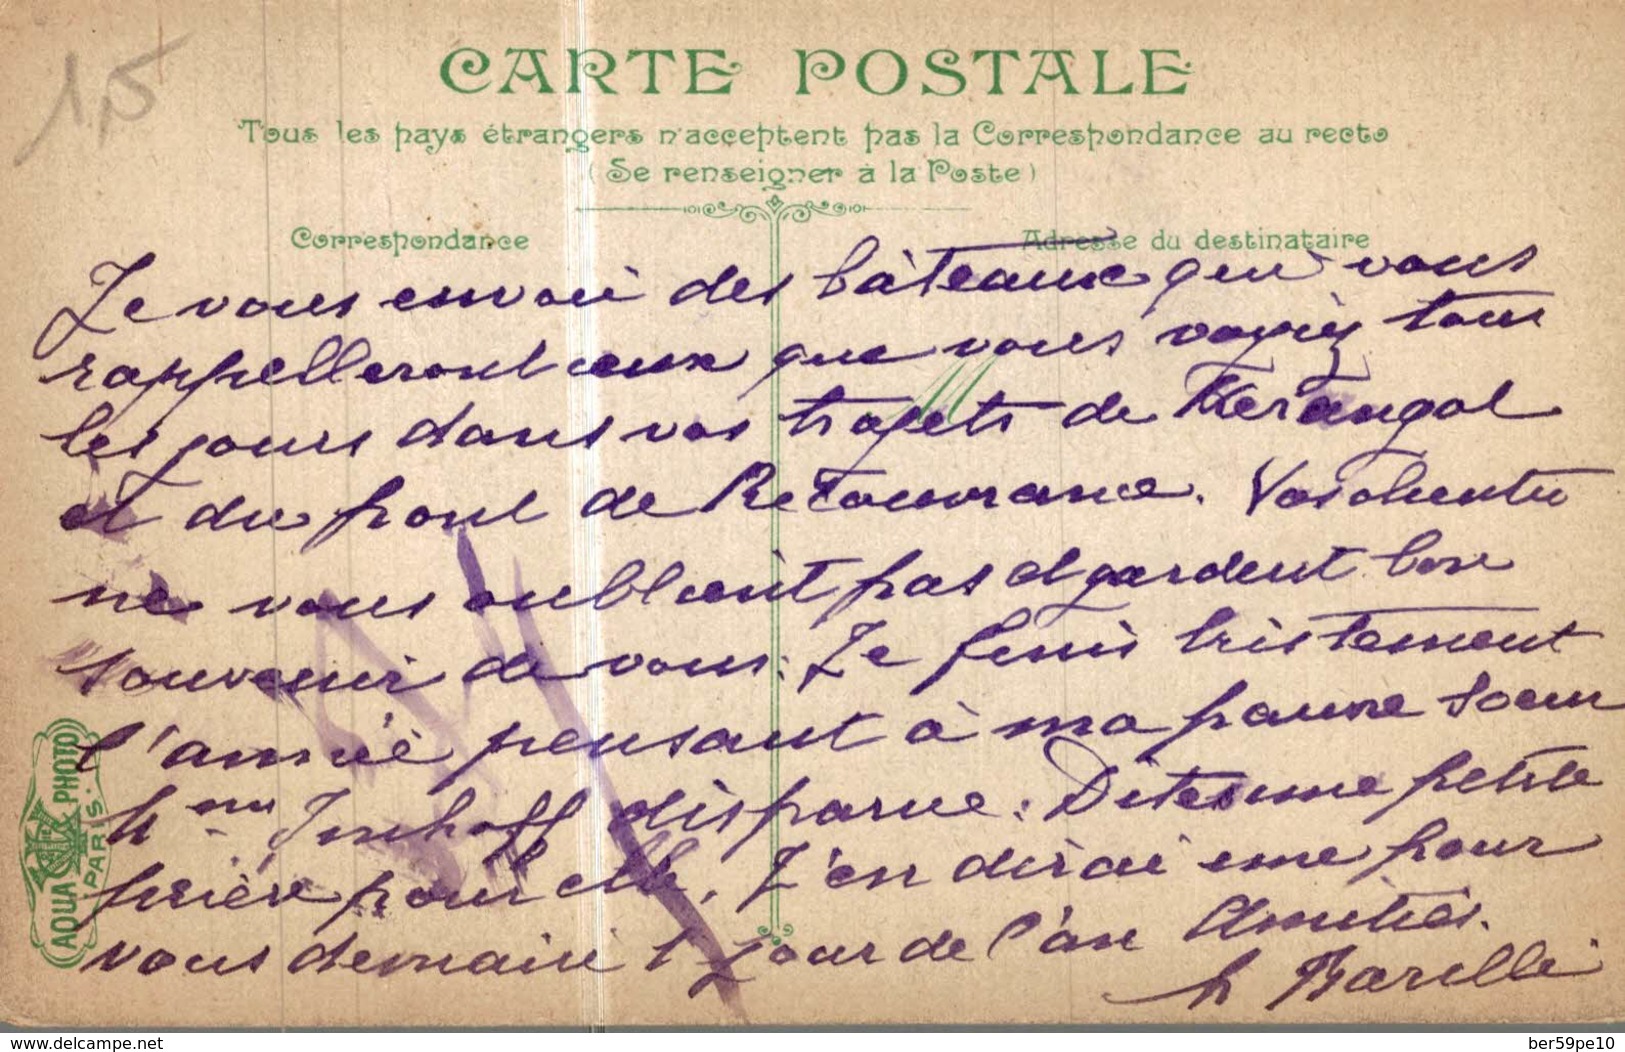 1,5
CARTE POSTALE
Tous les pays étrangers n'acceptent pas la Correspondance au recto
(Se renseigner à la Poste)
Correspondance
Adresse du destinataire
Je vous envoie des bâteaux qui vous
rappelleront ceux que vous voyiez tous
les jours dans vos trajets de Kerangol
et du pont de Recouvrance. Vos clientes
ne vous oublient pas et gardent bon
souvenir de vous. Je finis tristement
l'année pensant à ma pauvre soeur
Mme Imhoff disparue. Dites une petite
prière pour elle. J'en dirai une pour
vous demain 1er jour de l'an Amitiés.
Barelle
AQUA PHOTO
PARIS
www.delcampe.net
ber59pe10